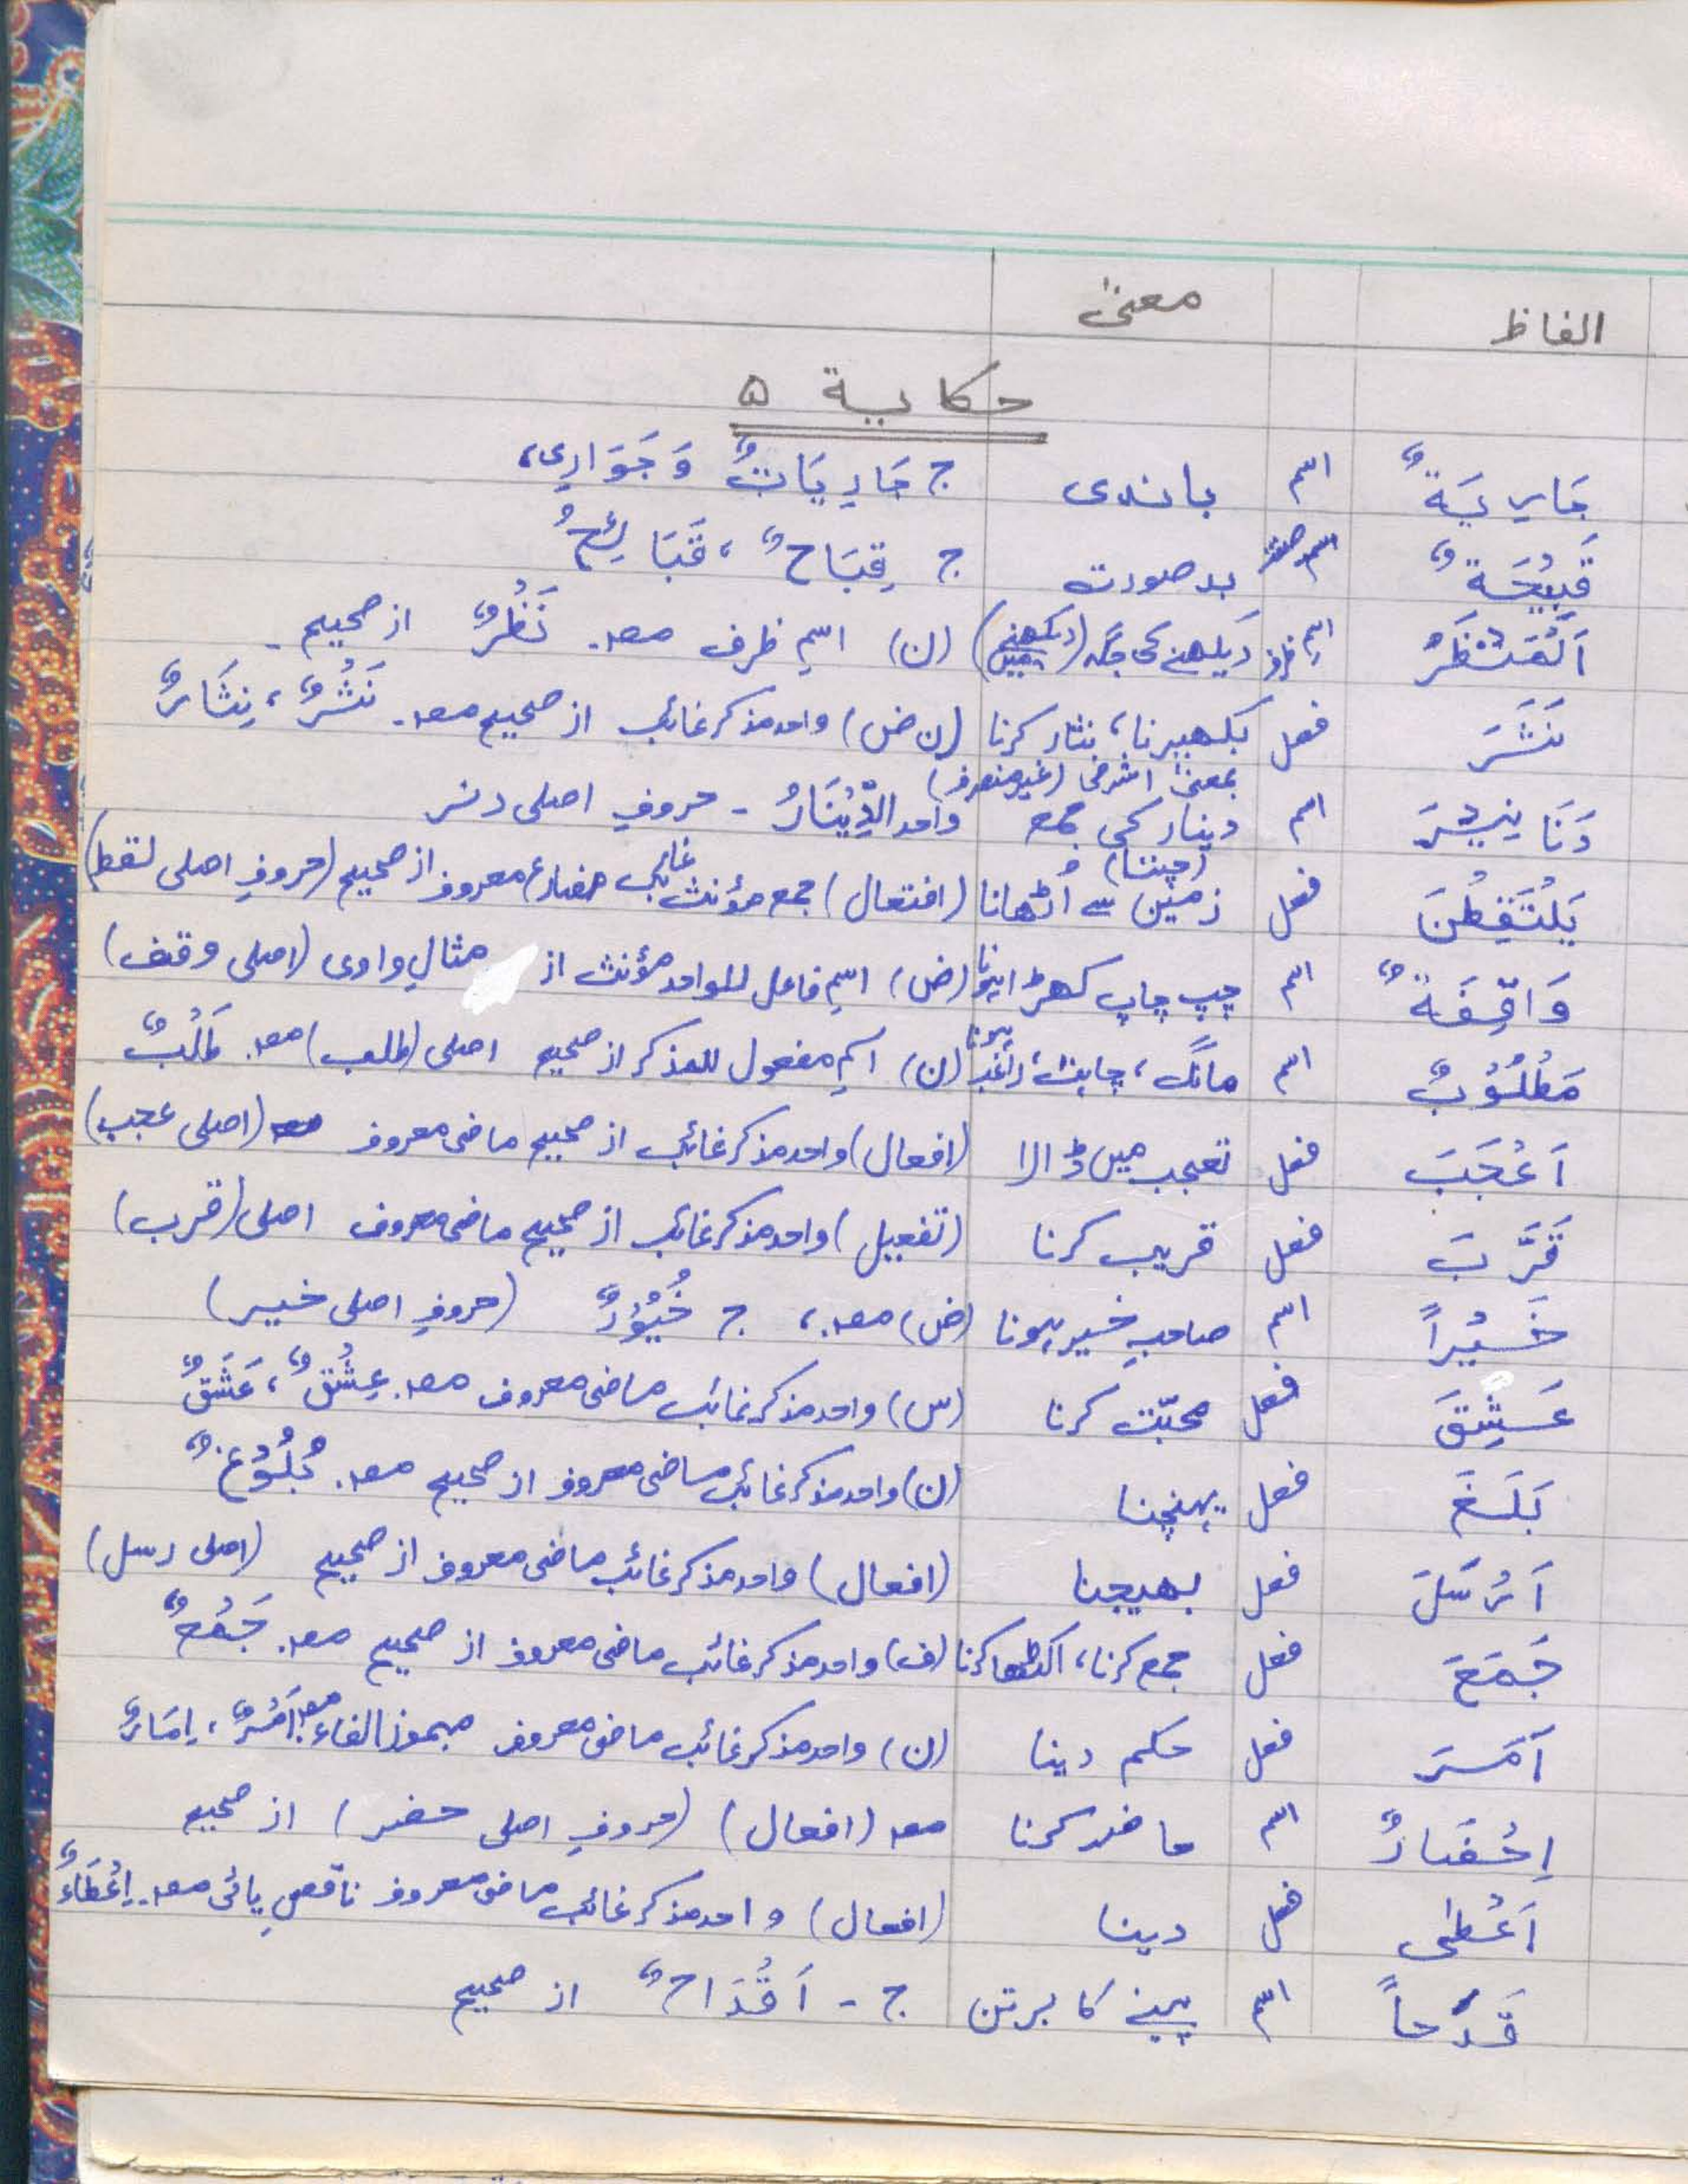 الفاظ معنیٰ
حکایۃ ۵
جَارِيَةٌ اسم باندی ج جَارِيَاتٌ وَ جَوَارِی،
قَبِيْحَةٌ اسم صفت بدصورت ج قِبَاحٌ ، قَبَائِحُ
اَلْمَنْظَرُ اسمِ ظرف دیکھنے کی جگہ (دیکھنے میں) (ن) اسمِ ظرف مصد. نَظْرٌ از صحیح ۔
نَثَرَ فعل بکھیرنا، نثار کرنا (ن ض) واحد مذکر غائب از صحیح مصد. نَثْرٌ ، نِثَارٌ
بمعنیٰ اشرفی (غیر منصرف)
دَنَانِيْرَ اسم دینار کی جمع واحد الدِّيْنَارُ ۔ حروفِ اصلی دنر
(چننا)
يَلْتَقِطْنَ فعل زمین سے اُٹھانا (افتعال) جمع مؤنث غائب مضارع معروف از صحیح (حروفِ اصلی لقط)
وَاقِفَةٌ اسم چپ چاپ کھڑا ہونا (ض) اسمِ فاعل للواحد مؤنث از مثالِ واوی (اصلی وقف)
مَطْلُوْبٌ اسم مانگ، چاہت، راغب ہونا (ن) اسمِ مفعول للمذکر از صحیح اصلی (طلب) مصد. طَلْبٌ
اَعْجَبَ فعل تعجب میں ڈالا (افعال) واحد مذکر غائب از صحیح ماضی معروف (اصلی عجب)
قَرَّبَ فعل قریب کرنا (تفعیل) واحد مذکر غائب از صحیح ماضی معروف اصلی (قرب)
خَيْراً اسم صاحبِ خیر ہونا (ض) مصد.، ج خُيُوْرٌ (حروفِ اصلی خیر)
عَشِقَ فعل محبّت کرنا (س) واحد مذکر غائب ماضی معروف مصد. عِشْقٌ ، عَشَقٌ
بَلَغَ فعل پہنچنا (ن) واحد مذکر غائب ماضی معروف از صحیح مصد. بُلُوْغٌ
اَرْسَلَ فعل بھیجنا (افعال) واحد مذکر غائب ماضی معروف از صحیح (اصلی رسل)
جَمَعَ فعل جمع کرنا، اکٹھا کرنا (ف) واحد مذکر غائب ماضی معروف از صحیح مصد. جَمْعٌ
اَمَرَ فعل حکم دینا (ن) واحد مذکر غائب ماضی معروف مہموز الفاء مصد. اَمْرٌ ، اِمَارٌ
اِحْضَارٌ اسم حاضر کرنا مصد (افعال) (حروفِ اصلی حضر) از صحیح
اَعْطٰی فعل دینا (افعال) واحد مذکر غائب ماضی معروف ناقصِ یائی مصد. اِعْطَاءٌ
قَدَحاً اسم پینے کا برتن ج ۔ اَقْدَاحٌ از صحیح